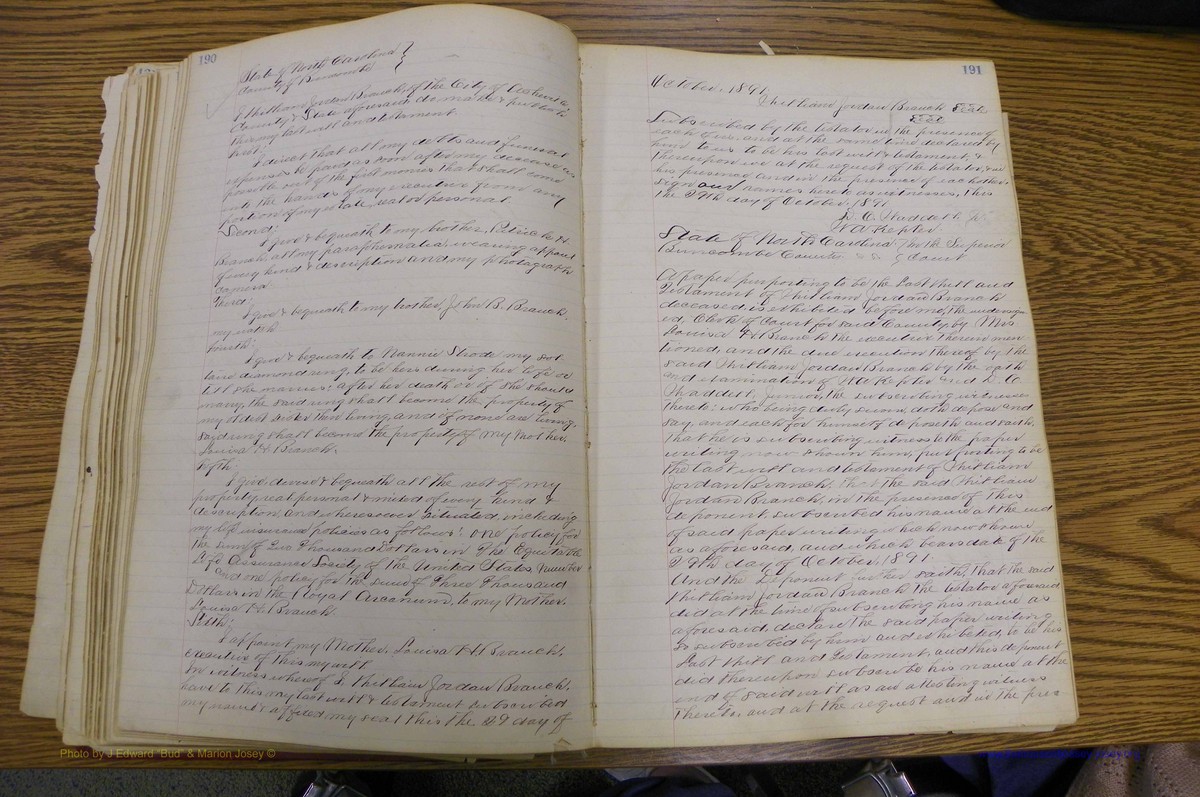 190
State of North Carolina }
County of Buncombe }
I William Jordan Branch, of the City of Asheville,
County & State aforesaid, do make & publish
this my last will and testament.
First;
I direct that all my debts and funeral
expenses be paid as soon after my decease as
possible out of the first monies that shall come
into the hands of my executor from any
portion of my estate, real or personal.
Second;
I give & bequeath to my brother, Patrick H.
Branch, all my paraphernalia, wearing apparel
of every kind & description and my photograph
camera.
Third;
I give & bequeath to my brother John B. Branch,
my watch
Fourth;
I give & bequeath to Nannie Strode my sol
taire diamond ring, to be hers during her life or
till she marries; after her death or if she should
marry, the said ring shall become the property of
my oldest sister then living, and if none are living,
said ring shall become the property of my Mother,
Louisa H. Branch.
Fifth
I give, devise & bequeath all the rest of my
property, real personal & mixed of every kind &
description, and wheresoever situated, including
my life insurance policies as follows: one policy for
the sum of Two Thousand Dollars in The Equitable
Life Assurance Society of the United States, Number
and one policy for the sum of Three Thousand
Dollars in the Royal Arcanum, to my Mother,
Louisa H. Branch
Sixth;
I appoint my Mother, Louisa H. Branch,
executrix of this my will
In witness whereof I William Jordan Branch,
have to this my last will & testament subscribed
my name & affixed my seal this the 29 day of
191
October, 1891,
William Jordan Branch Seal
Seal
Subscribed by the testator in the presence of
each of us, and at the same time declared by
him to us to be his last will & testament, &
thereupon we at the request of the testator, in
his presence and in the presence of each other,
sign our names hereto as witnesses, this
the 29th day of October, 1891
D. C. Waddell, Jr.
W. A. Hepler
State of North Carolina In the Superior
Buncombe County S.S. } Court
A paper purporting to be the Last Will and
Testament of William Jordan Branch
deceased, is exhibited before me, the undersign
ed, Clerk of Court for said County, by Mrs
Louisa H. Branch the executrix therein men
tioned, and the due execution thereof by the
said William Jordan Branch by the oath
and examination of W. A. Hepler and D. C.
Waddell, Junior, the subscribing witnesses
thereto; who being duly sworn, doth depose and
say, and each for himself deposeth and saith,
that he is subscribing witness to the paper
writing now shown him, purporting to be
the last will and testament of William
Jordan Branch, that the said William
Jordan Branch, in the presence of this
deponent, subscribed his name at the end
of said paper writing which now shown
as aforesaid, and which bears date of the
29th day of October, 1891.
And the Deponent further saith, that the said
William Jordan Branch the testator aforesaid
did at the time of subscribing his name as
aforesaid, declare the said paper writing
so subscribed by him and exhibited, to be his
Last Will and Testament, and this deponent
did thereupon subscribe his name at the
end of said will as an attesting witness
thereto, and at the request and in the pres-
Photo by J Edward "Bud" & Marion Josey ©